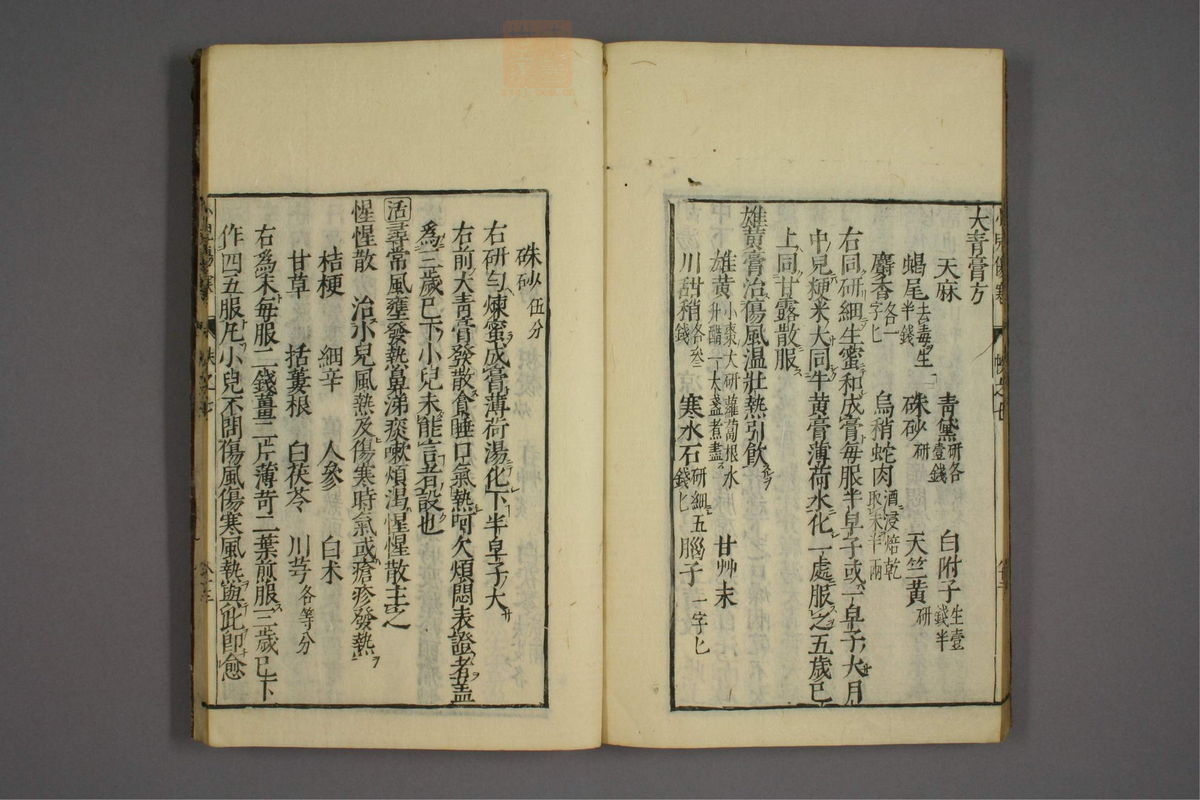 大青膏方
天麻 青黛研各壹錢 白附子生壹錢半
蝎尾去毒生半錢 硃砂研 天竺黃研
麝香各一字匕 烏稍蛇肉酒浸焙乾取末半兩
右同研細生蜜和成膏每服半皁子或一皁子大月
中兒粳米大同牛黄膏薄荷水化一處服之五歲已
上同甘露散服
雄黄膏治傷風温壯熱引飲
雄黄小棗大研蘿蔔根水并醋一大盞煮盡 甘艸末
川甜稍各叁錢 寒水石研細五錢匕 腦子一字匕
硃砂伍分
右研勻煉蜜成膏薄荷湯化下半皁子大
右前大青膏發散貪睡口氣熱呵欠煩悶表證者盖
為三歲已下小兒未能言者設也
活尋常風壅發熱鼻涕痰嗽煩渴惺惺散主之
惺惺散 治小兒風熱及傷寒時氣或瘡疹發熱
桔梗 細辛 人參 白术
甘草 括蔞根 白茯苓 川芎各等分
右為末每服二錢薑二片薄苛二葉煎服三歲已下
作四五服凡小兒不問傷風傷寒風熱與此即愈